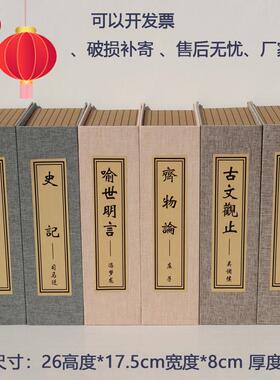 可以开发票
、破损补寄 、售后无忧、厂家
史記
司马迁
喻世明言
冯梦龙
齊物論
庄子
古文觀止
吴调侯
尺寸：26高度*17.5cm宽度*8cm 厚度